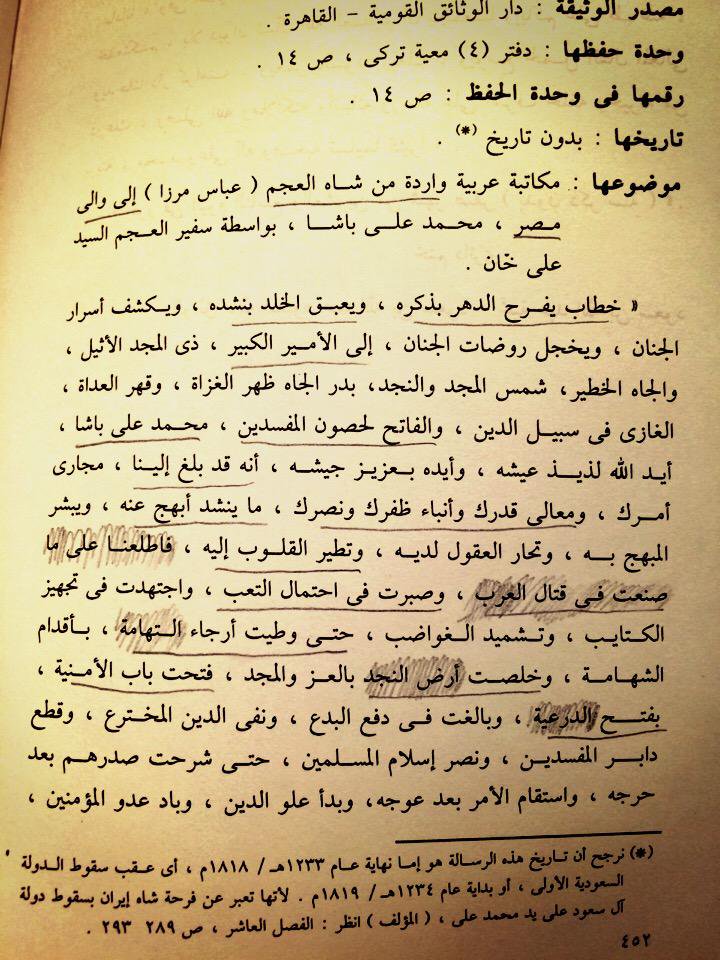 مصدر الوثيقة : دار الوثائق القومية - القاهرة .
وحدة حفظها : دفتر (٤) معية تركى ، ص ١٤ .
رقمها فى وحدة الحفظ : ص ١٤ .
تاريخها : بدون تاريخ (*) .
موضوعها : مكاتبة عربية واردة من شاه العجم ( عباس مرزا ) إلى والى
مصر ، محمد على باشا ، بواسطة سفير العجم السيد
على خّان .
« خطاب يفرح الدهر بذكره ، ويعبق الخلد بنشده ، ويكشف أسرار
الجنان ، ويخجل روضات الجنان ، إلى الأمير الكبير ، ذى المجد الأثيل ،
والجاه الخطير، شمس المجد والنجد، بدر الجاه ظهر الغزاة ، وقهر العداة ،
الغازى فى سبيل الدين ، والفاتح لحصون المفسدين ، محمد على باشا ،
أيد الله لذيذ عيشه ، وأيده بعزيز جيشه ، أنه قد بلغ إلينا ، مجارى
أمرك ، ومعالى قدرك وأنباء ظفرك ونصرك ، ما ينشد أبهج عنه ، ويبشر
المبهج به ، وتحار العقول لديه ، وتطير القلوب إليه ، فاطلعنا على ما
صنعت فى قتال العرب ، وصبرت فى احتمال التعب ، واجتهدت فى تجهيز
الكتايب ، وتشميد الغواضب ، حتى وطيت أرجاء التهامة ، بأقدام
الشهامة ، وخلصت أرض النجد بالعز والمجد ، فتحت باب الأمنية ،
بفتح الدرعية ، وبالغت فى دفع البدع ، ونفى الدين المخترع ، وقطع
دابر المفسدين ، ونصر إسلام المسلمين ، حتى شرحت صدرهم بعد
حرجه ، واستقام الأمر بعد عوجه، وبدأ علو الدين ، وباد عدو المؤمنين ،
(*) نرجح أن تاريخ هذه الرسالة هو إما نهاية عام ١٢٣٣هـ / ١٨١٨م ، أى عقب سقوط الدولة
السعودية الأولى ، أو بداية عام ١٢٣٤هـ / ١٨١٩م . لأنها تعبر عن فرحة شاه إيران بسقوط دولة
آل سعود على يد محمد على ، ( المؤلف ) انظر : الفصل العاشر ، ص ٢٨٩ ٢٩٣ .
٤٥٢